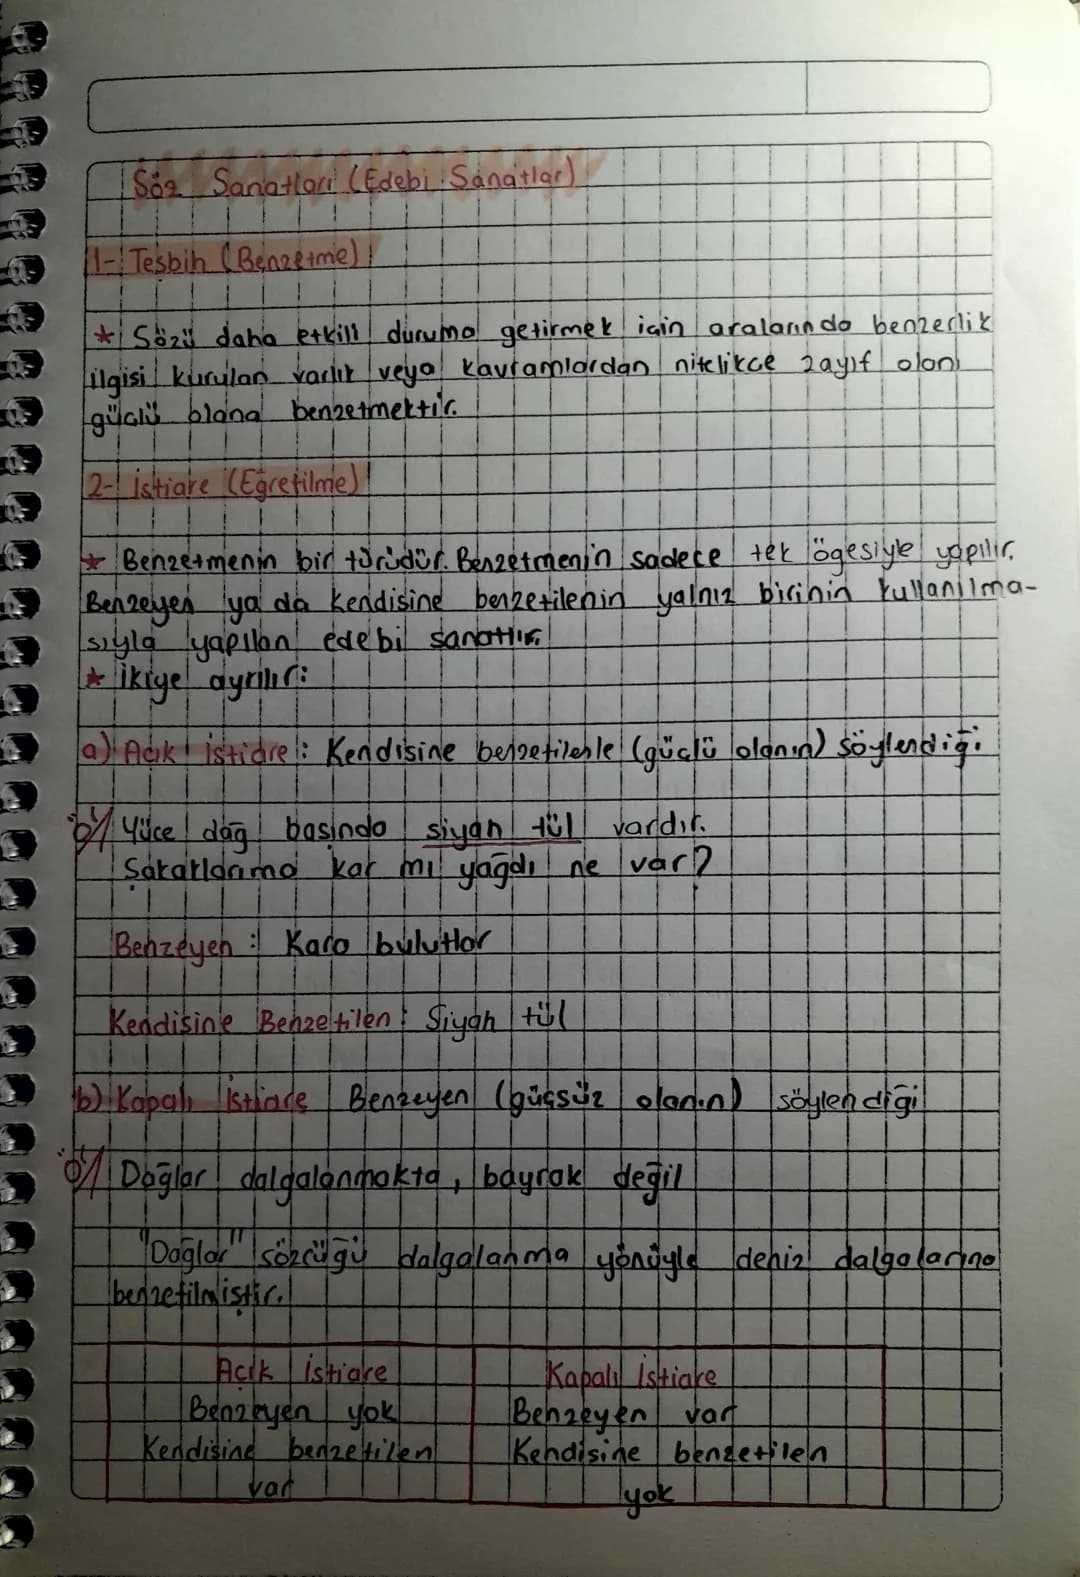 Söz Sanatları (Edebi Sanatlar)
1- Teşbih (Benzetme)
* Sözü daha etkili duruma getirmek için aralarında benzerlik
ilgisi kurulan varlık veya kavramlardan nitelikce zayıf olanı
güçlü olana benzetmektir.
2- İstiare (Eğretilme)
* Benzetmenin bir türüdür. Benzetmenin sadece tek ögesiyle yapılır.
Benzeyen ya da kendisine benzetilenin yalnız birinin kullanılma-
sıyla yapılan edebi sanattır.
* İkiye ayrılır:
a) Açık istiare: Kendisine benzetilenle (güçlü olanın) söylendiği
ör/ Yüce dağ başında siyah tül vardır.
Şakaklarıma kar mı yağdı ne var?
Benzeyen: Kara bulutlar
Kendisine Benzetilen: Siyah tül
b) Kapalı İstiare Benzeyen (güçsüz olanın) söylendiği
ör/ Dağlar dalgalanmakta, bayrak değil
"Dağlar" sözcüğü dalgalanma yönüyle deniz dalgalarına
benzetilmiştir.
Açık İstiare Kapalı İstiare
Benzeyen yok Benzeyen var
Kendisine benzetilen Kendisine benzetilen
var yok